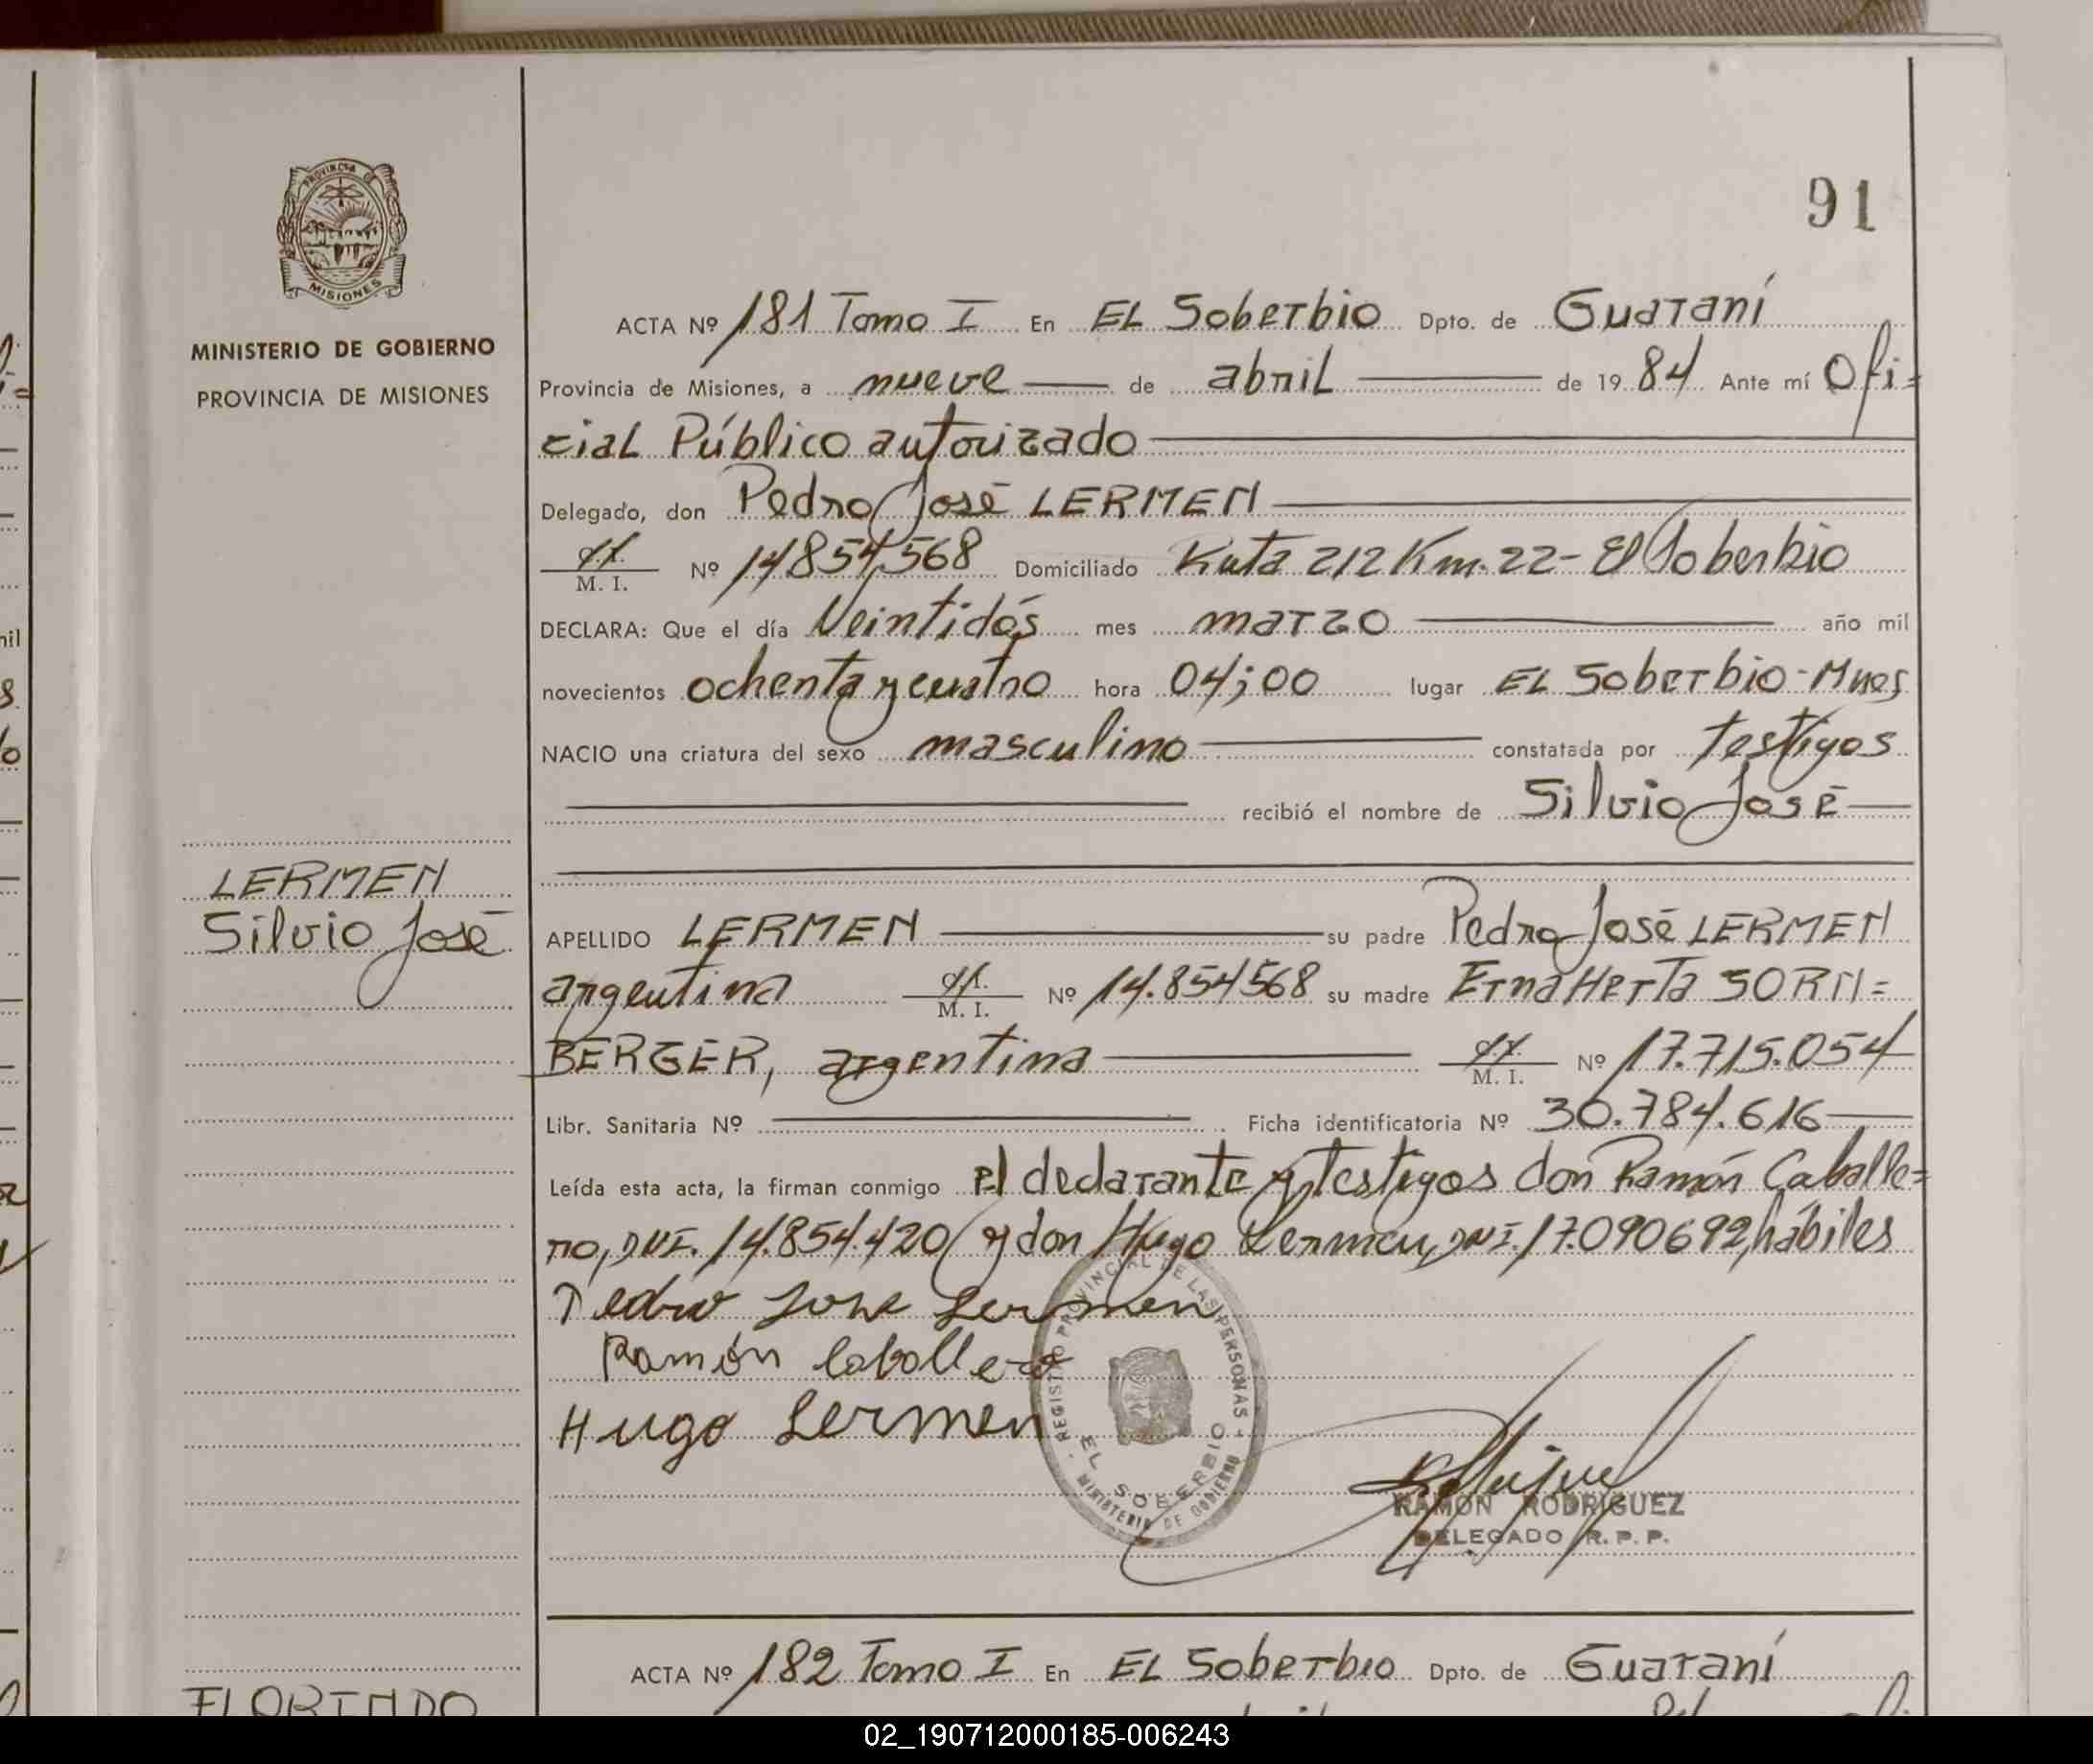 91
PROVINCIA DE
MISIONES
MINISTERIO DE GOBIERNO
PROVINCIA DE MISIONES
ACTA Nº 181 Tomo I En EL Soberbio Dpto. de Guaraní
Provincia de Misiones, a nueve de abril de 1984 Ante mí Ofi=
cial Público autorizado
Delegado, don Pedro José LERMEN
M. I. Nº 14854568 Domiciliado Ruta 212 Km. 22- El Soberbio
DECLARA: Que el día Veintidós mes marzo año mil
novecientos ochenta y cuatro hora 04;00 lugar EL Soberbio - Mnes
NACIO una criatura del sexo masculino constatada por testigos
recibió el nombre de Silvio José
LERMEN
Silvio José
APELLIDO LERMEN su padre Pedro José LERMEN
argentina M. I. Nº 14.854568 su madre Erna Herta SORN=
BERGER, argentina M. I. Nº 17.715.054
Libr. Sanitaria Nº Ficha identificatoria Nº 30.784.616
Leída esta acta, la firman conmigo el declarante y testigos don Ramón Caballe=
ro, DNI. 14.854.420 y don Hugo Lermen, DNI. 17.090692, hábiles
Pedro Jose Lermen
Ramón Caballero
Hugo Lermen
REGISTRO PROVINCIAL DE LAS PERSONAS
EL SOBERBIO
MINISTERIO DE GOBIERNO
RAMON RODRIGUEZ
DELEGADO R. P. P.
ACTA Nº 182 Tomo I En EL Soberbio Dpto. de Guaraní
FLORINDO
02_190712000185-006243